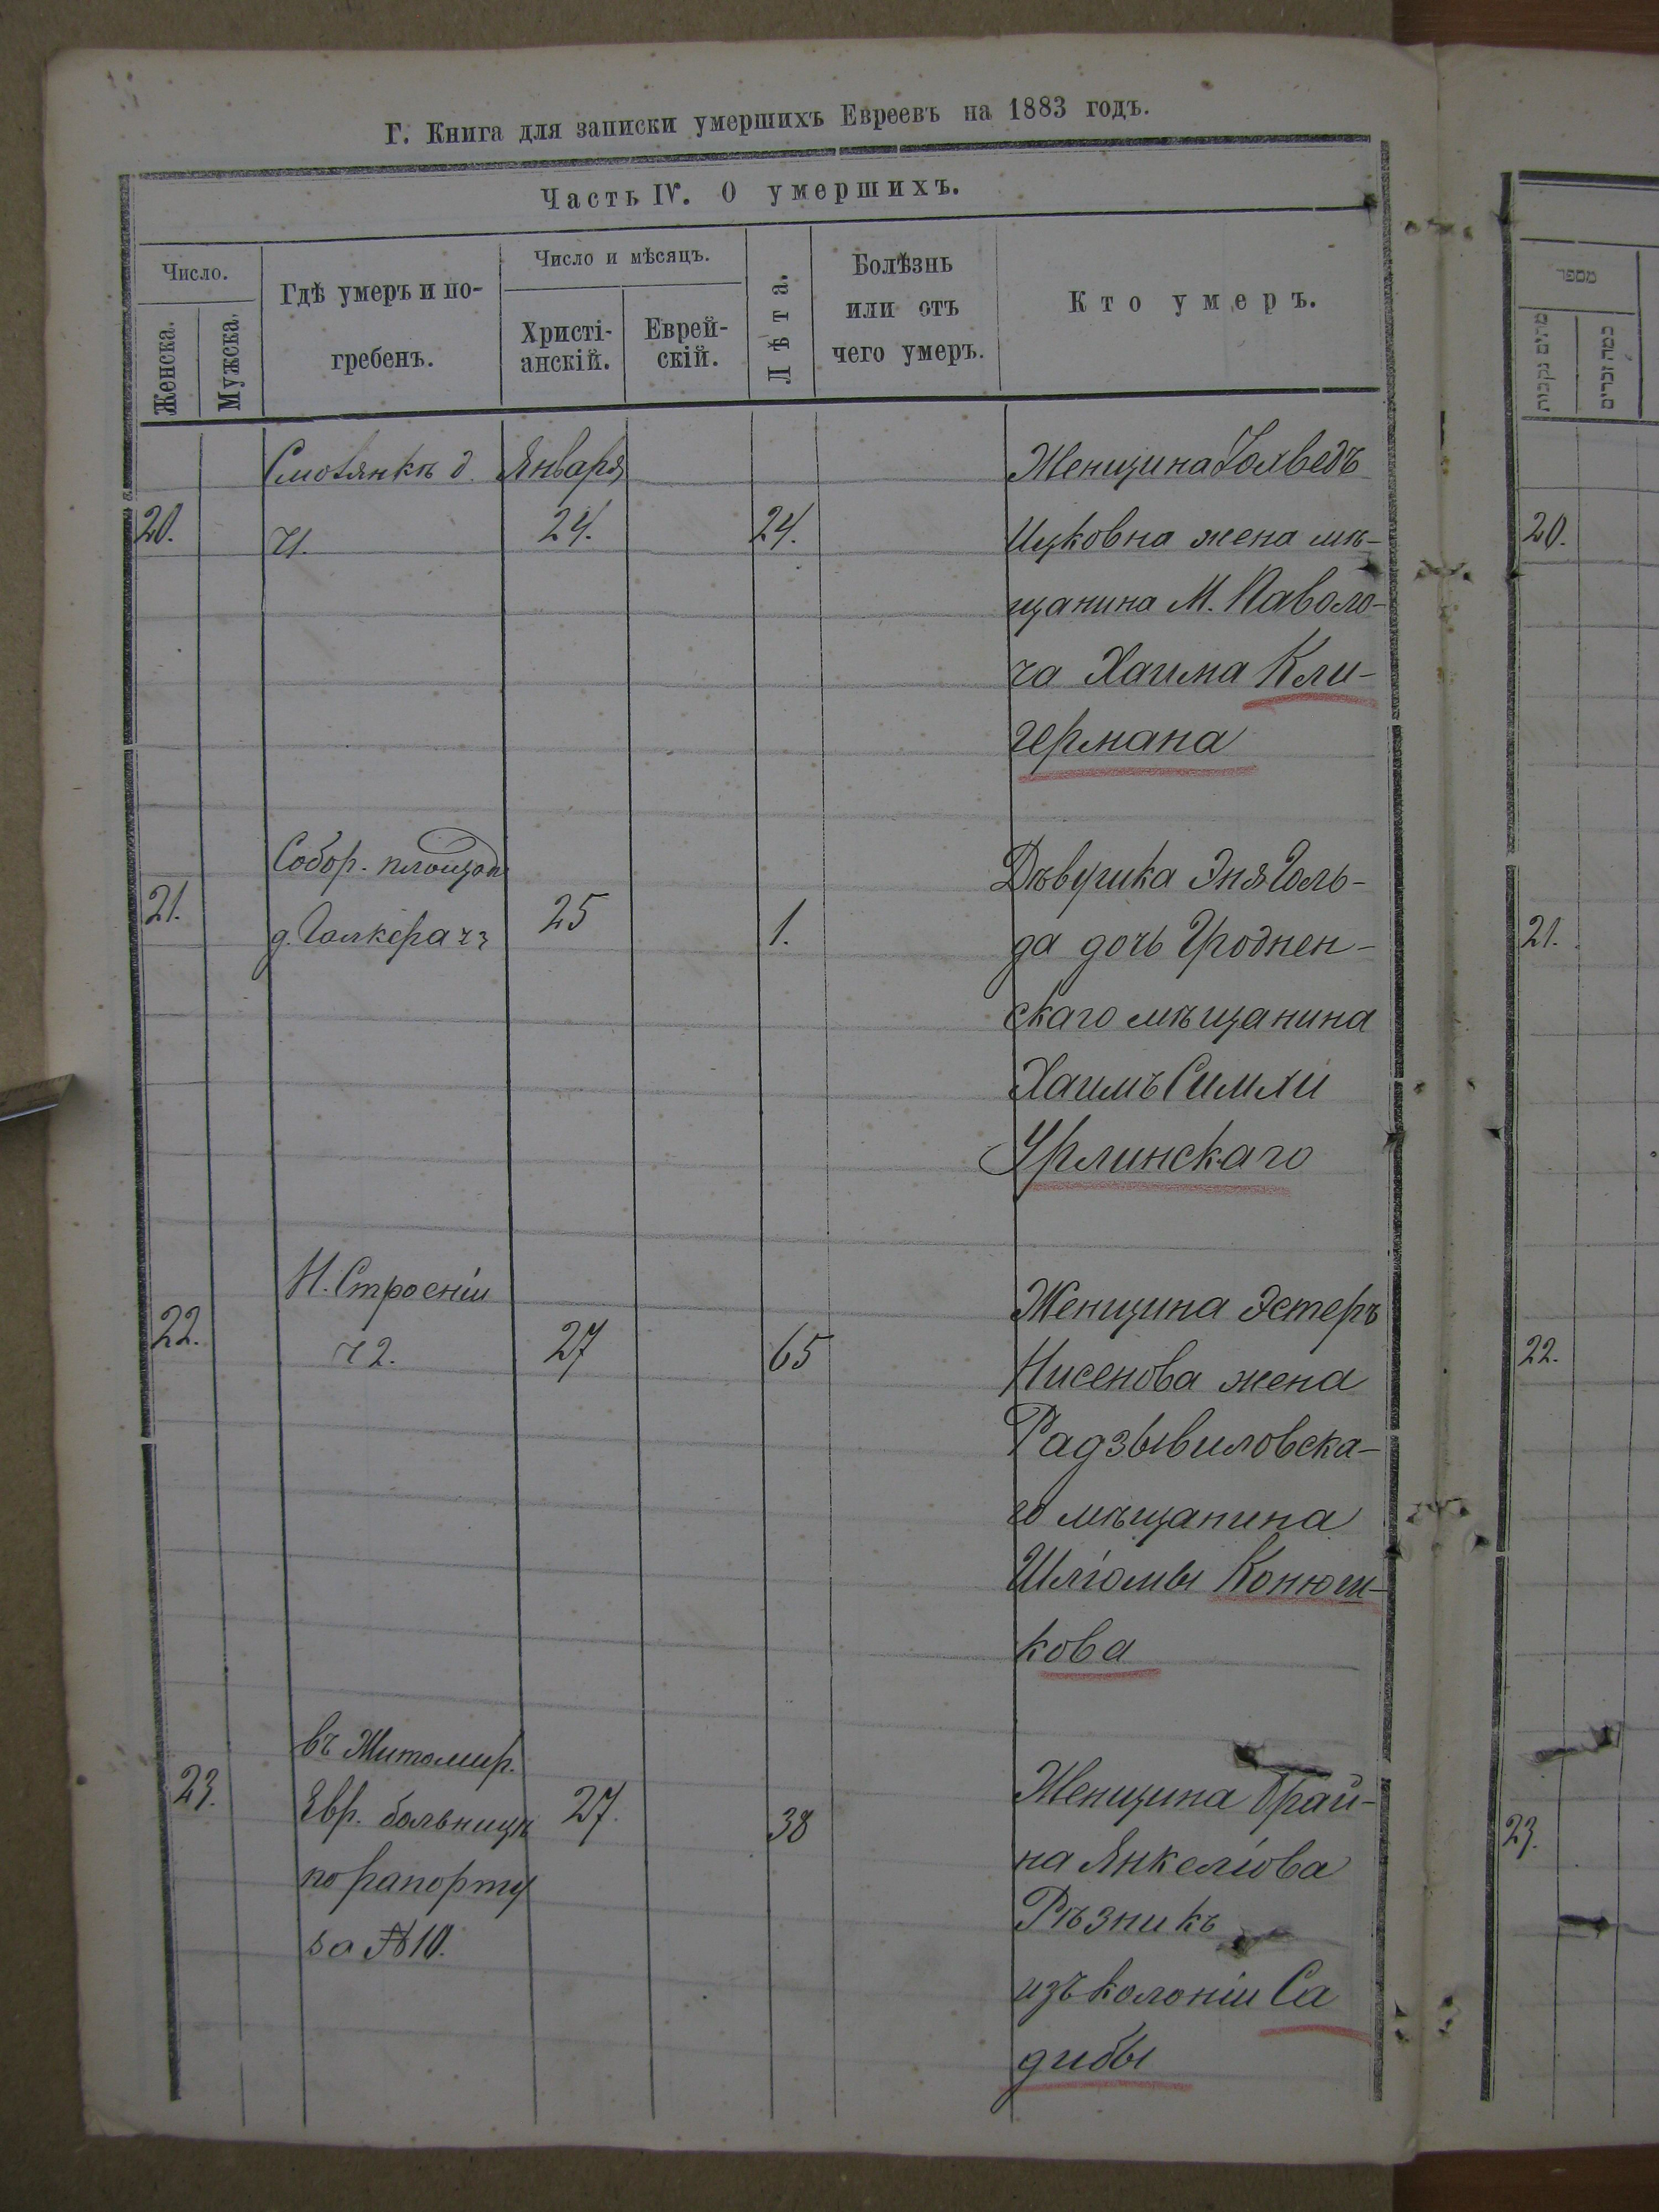 Г. Книга для записки умершихъ Евреевъ на 1883 годъ.
Часть IV. О умершихъ.
Число.
Женска.
Мужска.
Гдѣ умеръ и по-
гребенъ.
Число и мѣсяцъ.
Христі-
анскій.
Еврей-
скій.
Лѣта.
Болѣзнь
или отъ
чего умеръ.
Кто умеръ.
מספר
20.
д.
ч1.
Января
24.
24.
Женщина
Ицковна жена мѣ-
щанина М. Паволо-
ча Хаима Кли-
германа
20.
21.
Собор. площади
д. ч3
25
1.
Дѣвушка Эня Голь-
да дочь Гроднен-
скаго мѣщанина
Хаимъ Симхи
Урлинскаго
21.
22.
Н. Строеніи
ч2.
27
65
Женщина Эстеръ
Нисенова жена
Радзывиловска-
го мѣщанина
Шліомы Конюш-
кова
22.
23.
въ Житомир.
Евр. больницѣ
по рапорту
за №10.
27.
38
Женщина Брай-
на Янкеліова
Рѣзникъ
изъ колоніи Са
дибы
23.